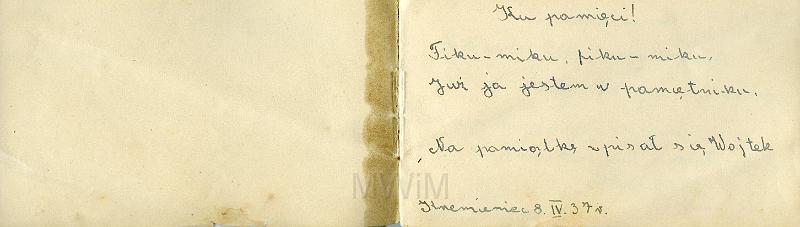 Ku pamięci!
Fiku-miku, fiku-miku,
Już ja jestem w pamiętniku.
Na pamiątkę wpisał się Wojtek
MWiM
Krzemieniec 8.IV.37r.